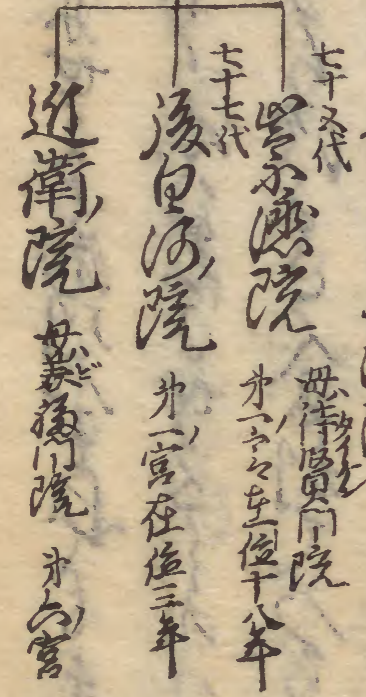 七十五代
崇徳院
母ハ待賢門院
第一ノ宮在位十八年
七十七代
後白河ノ院
第一ノ宮在位三年
近衛ノ院
母ハ美福門院
第六ノ宮